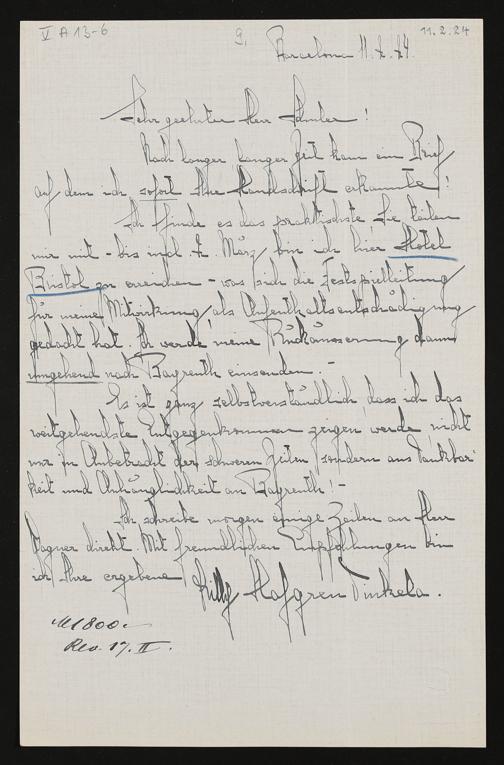 V A 13-6
9,
11.2.24
Barcelona 11. 2. 24.
Sehr geehrter Herr Sämler!
Nach langer langer Zeit kam ein Brief
auf dem ich sofort Ihre Handschrift erkannte!
Ich finde es das praktischste Sie teilen
mir mit - bis incl. 2. März bin ich hier Hotel
Bristol zu erreichen - was sich die Festspielleitung
für meine Mitwirkung als Aufenthaltsentschädigung
gedacht hat. Ich werde meine Rückäusserung dann
umgehend nach Bayreuth einsenden. -
Es ist ganz selbstverständlich dass ich das
weitgehendste Entgegenkommen zeigen werde, nicht
nur in Anbetracht der schweren Zeiten, sondern aus Dankbar-
keit und Anhänglichkeit an Bayreuth! -
Ich schreibe morgen einige Zeilen an Herr
Wagner direkt. Mit freundlichen Empfehlungen bin
ich Ihre ergebene Lilly Hafgren Dinkela.
M 1800.-
17. II.